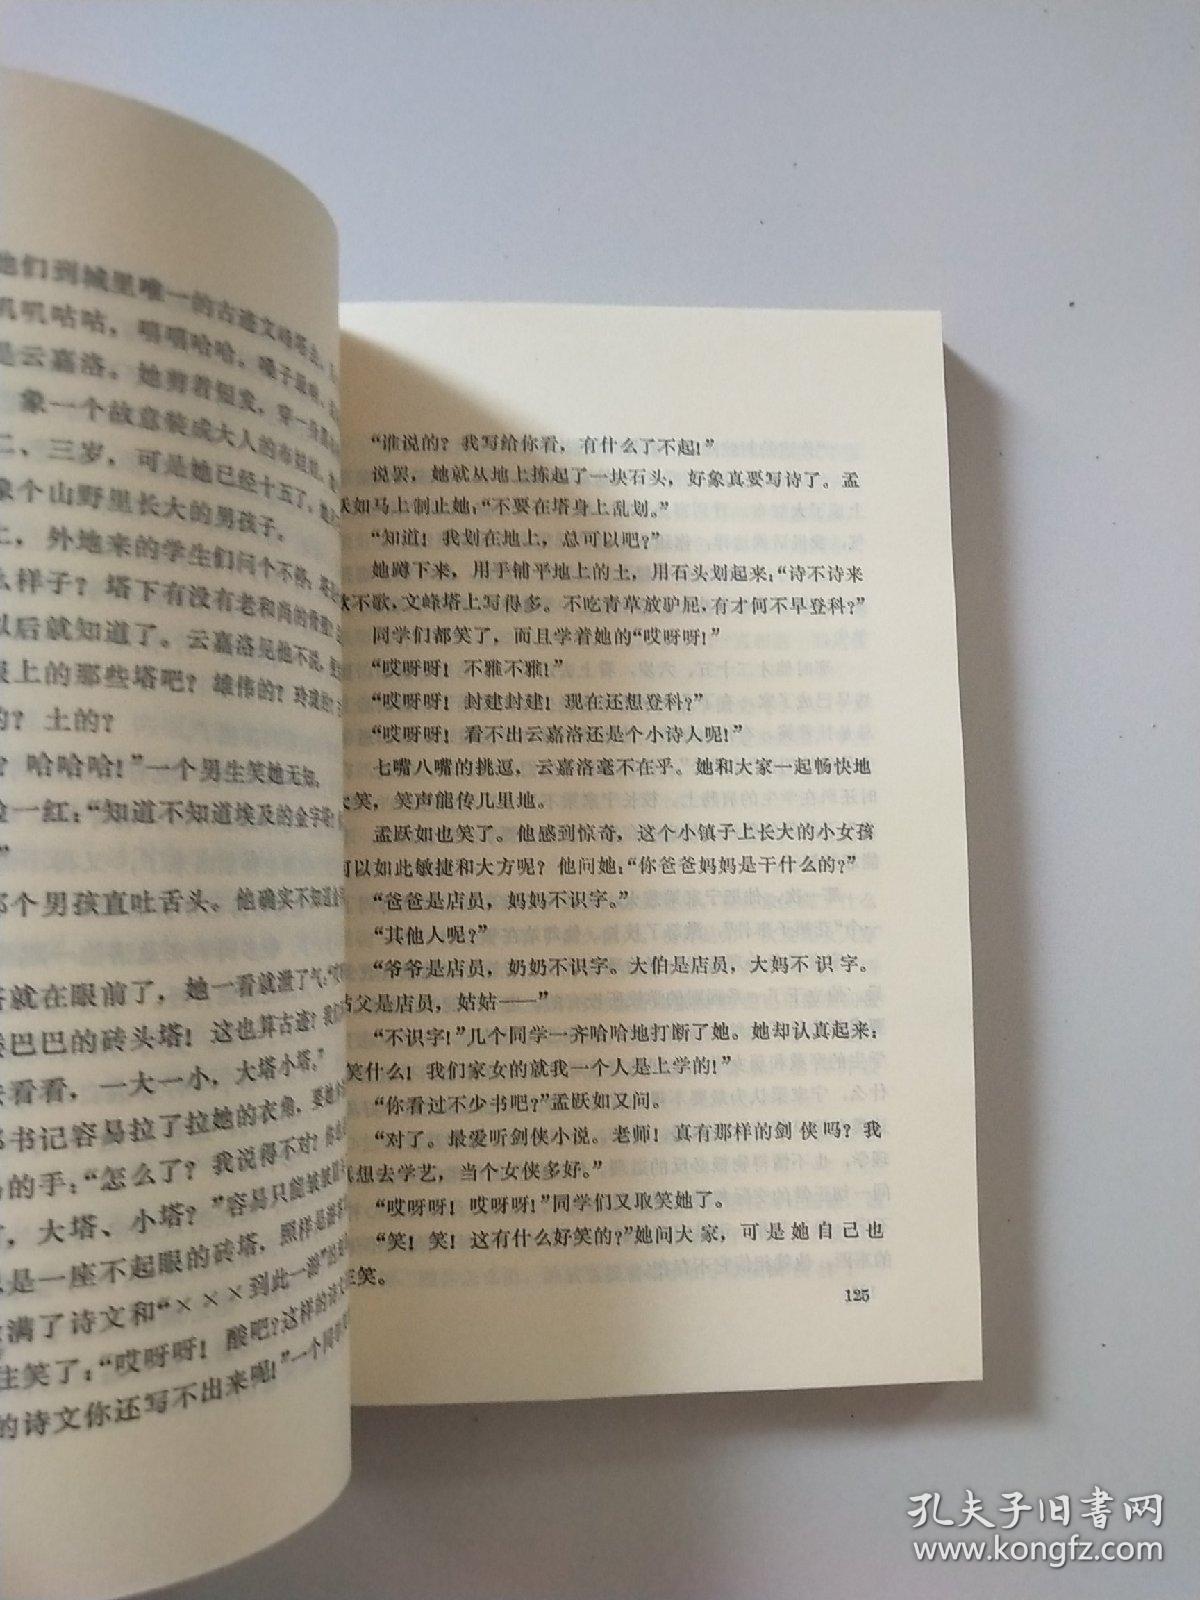 们到城里唯一的古迹文峰塔去
叽叽咕咕，嘻嘻哈哈。嗓子最
是云嘉洛。她剪着短发，穿一身
象一个故意装成大人的布娃娃
二、三岁，可是她已经十五了
象个山野里长大的男孩子。
上，外地来的学生们问个不停：塔
么样子？塔下有没有老和尚的
以后就知道了。云嘉洛见他不说
上的那些塔吧？雄伟的？玲珑
的？土的？
？哈哈哈！”一个男生笑她无知。
脸一红：“知道不知道埃及的金字塔
”
那个男孩直吐舌头。他确实不知道
塔就在眼前了，她一看就泄了气：
巴巴的砖头塔！这也算古迹？我
去看看，一大一小，大塔小塔。”
书记容易拉了拉她的衣角，要她
的手：“怎么了？我说得不对？
，大塔、小塔？”容易只能皱皱眉
是一座不起眼的砖塔，照样是
满了诗文和“×××到此一游”
住笑了：“哎呀呀！酸吧？这样的诗文
的诗文你还写不出来呢！”一个同
“谁说的？我写给你看，有什么了不起！”
说罢，她就从地上拣起了一块石头，好象真要写诗了。孟
跃如马上制止她：“不要在塔身上乱划。”
“知道！我划在地上，总可以吧？”
她蹲下来，用手铺平地上的土，用石头划起来：“诗不诗来
歌不歌，文峰塔上写得多。不吃青草放驴屁，有才何不早登科？”
同学们都笑了，而且学着她的“哎呀呀！”
“哎呀呀！不雅不雅！”
“哎呀呀！封建封建！现在还想登科？”
“哎呀呀！看不出云嘉洛还是个小诗人呢！”
七嘴八嘴的挑逗，云嘉洛毫不在乎。她和大家一起畅快地
大笑，笑声能传几里地。
孟跃如也笑了。他感到惊奇，这个小镇子上长大的小女孩
可以如此敏捷和大方呢？他问她：“你爸爸妈妈是干什么的？”
“爸爸是店员，妈妈不识字。”
“其他人呢？”
“爷爷是店员，奶奶不识字。大伯是店员，大妈不识字。
姑父是店员，姑姑——”
“不识字！”几个同学一齐哈哈地打断了她。她却认真起来：
笑什么！我们家女的就我一个人是上学的！”
“你看过不少书吧？”孟跃如又问。
“对了。最爱听剑侠小说。老师！真有那样的剑侠吗？我
真想去学艺，当个女侠多好。”
“哎呀呀！哎呀呀！”同学们又取笑她了。
“笑！笑！这有什么好笑的？”她问大家，可是她自己也
在笑。
125
孔夫子旧书网
www.kongfz.com